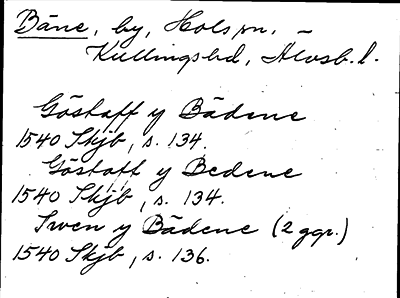 Bäne, by, Hols sn, –
Kullingshd, Älvsb. l.
Göstaff y Bädene
1540 Skjb, s. 134.
Göstaff y Bedene
1540 Skjb, s. 134.
Swen y Bädene (2 ggr.)
1540 Skjb, s. 136.